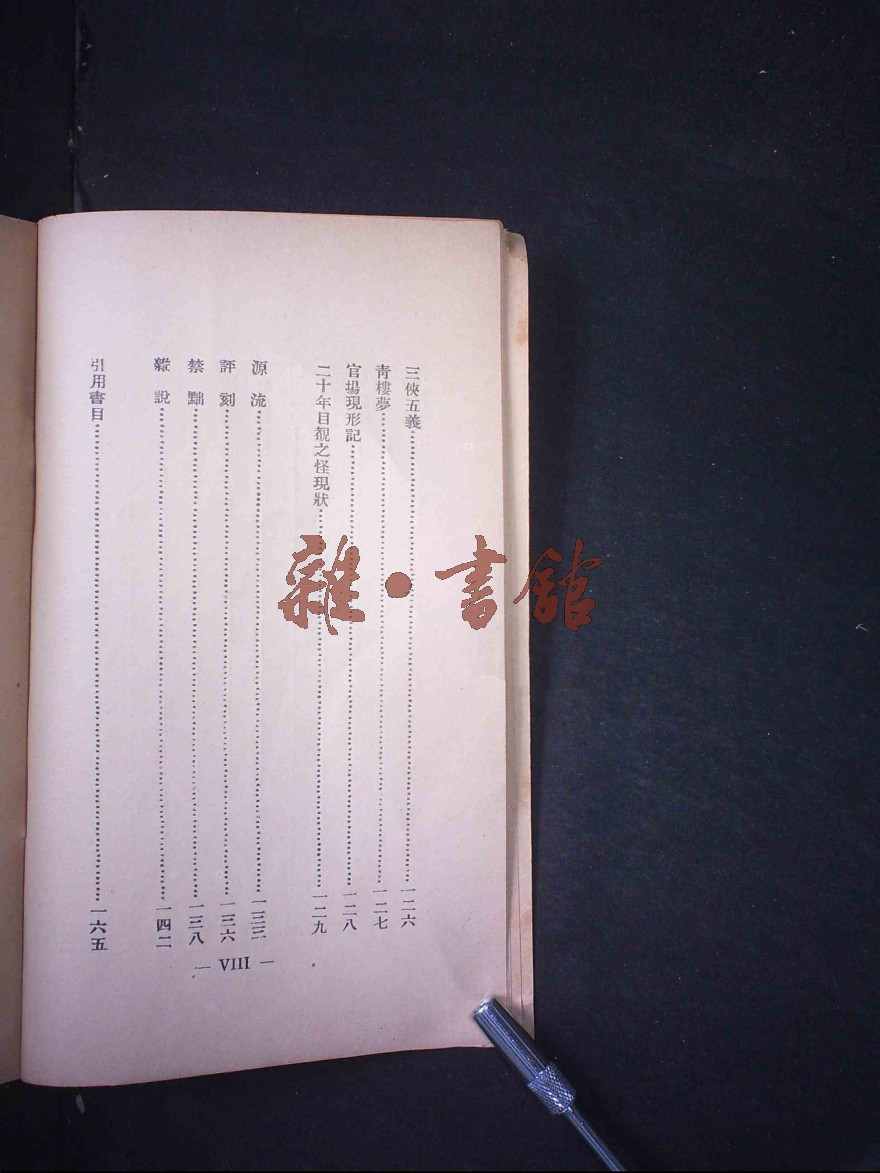 三俠五義……一二六
青樓夢……一二七
官場現形記……一二八
二十年目覩之怪現狀……一二九
源流……一三三
評刻……一三六
禁黜……一三八
雜說……一四二
引用書目……一六五
— VIII —
雜·書館